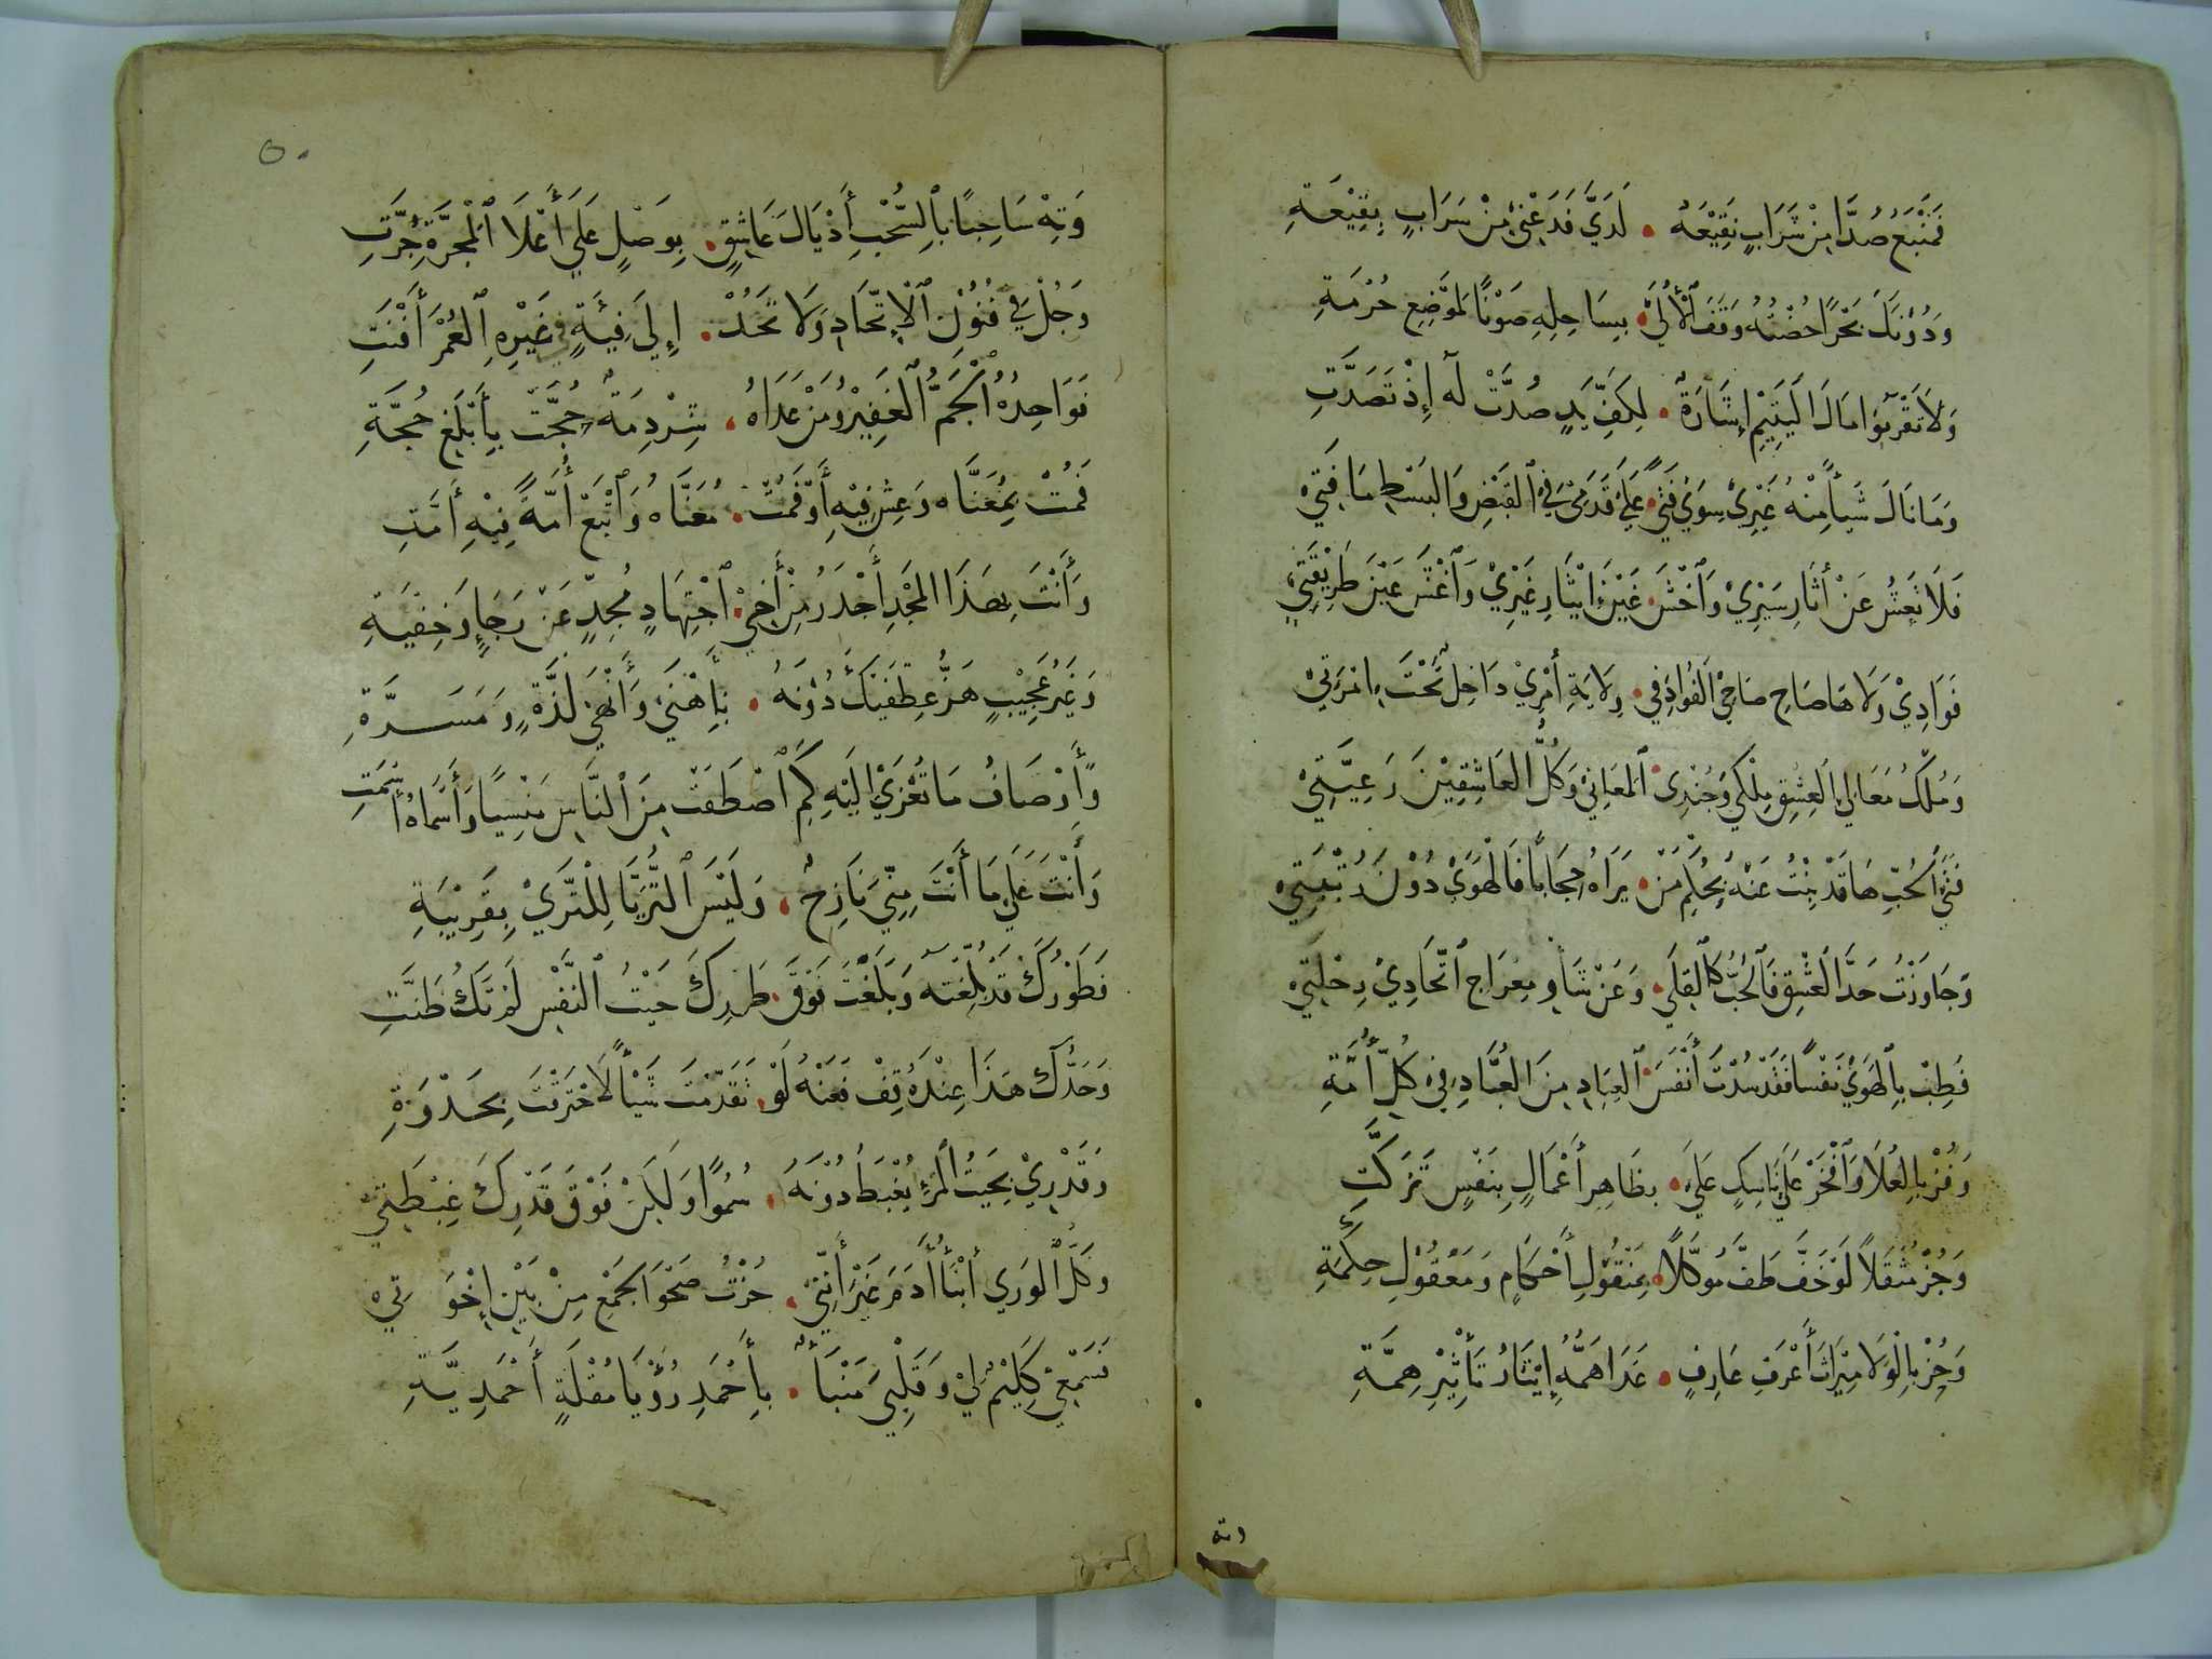 فَمَنْبَعُ صُدَّا مِنْ شَرَابٍ نَقِيْعُهُ • لَدَيَّ فَدَعْنِي مِنْ سَرَابٍ بِقِيْعَةِ
وَدُوْنَكَ بَحْرًا خُضْتُهُ وَقَفَ الْأُلَى • بِسَاحِلِهِ صَوْنًا لِمَوْضِعِ حُرْمَةِ
وَلَا تَقْرَبُوا مَالَ الْيَتِيْمِ إِشَارَةٌ • لِكَفِّ يَدٍ صُدَّتْ لَهُ إِذْ تَصَدَّتِ
وَمَا نَالَ شَيْأً مِنْهُ غَيْرِيْ سِوَيْ فَتًى • عَلَيْ قَدَمِيْ فِي الْقَبْضِ وَالْبَسْطِ مَا فَتِيْ
فَلَا تَعْشُ عَنْ أثَارِ سَيْرِيْ وَاخْشَ • غَيْنَ إِيْثَارِ غَيْرِيْ وَاغْشَ عَيْنَ طَرِيْقَتِيْ
فَوَادِيْ وَلَاهَا صَاحِ صَاحِي الْفُوَادِ فِي • وِلَايَةِ أَمْرِيْ دَاخِلٌ تَحْتَ إمْرَتِيْ
وَمُلْكُ مَعَالِي الْعِشْقِ مِلْكِيْ وَجُنْدِيَ • الْمَعَانِيْ وَكُلُّ الْعَاشِقِيْنَ رَعِيَّتِيْ
فَتَى الْحُبِّ هَا قَدْ بِنْتُ عَنْهُ بِحُكْمِ مَنْ • يَرَاهُ حِجَابًا فَالْهَوَيْ دُوْنَ رُتْبَتِيْ
وَجَاوَزْتُ حَدَّ الْعِشْقِ فَالْحُبُّ كَالْقِلَي • وَعَنْ شَأْوِ مِعْرَاجِ اتِّحَادِيْ رِحْلَتِيْ
فَطِبْ بِالْهَوَيْ نَفْسًا فَقَدْ سُدْتَ أَنْفَسَ • الْعِبَادِ مِنَ الْعُبَّادِ فِيْ كُلِّ أُمَّةِ
وَفُزْ بِالْعُلَا وَافْخَرْ عَلَيْ نَاسِكٍ عَلَيْ • بِظَاهِرِ أَعْمَالٍ بِنَفْسٍ تَزَكَّتِ
وَجُزْ مُثْقَلاً لَوْ خَفَّ طَفَّ مُوَكَّلاً • بِمَنْقُوْلِ أَحْكَامٍ وَمَعْقُوْلِ حِكْمَةِ
وَحُزْ بِالْوِلَا مِيْرَاثَ أَعْرَفِ عَارِفٍ • غَدَا هَمُّهُ إِيْثَارُ تَأْثِيْرِ هِمَّةِ
وته
٥٠
وَتِهْ سَاحِبًا بِالسُّحْبِ أَذْيَالَ عَاشِقٍ • بِوَصْلٍ عَلَيْ أَعْلَا الْمَجَرَّةِ جُرَّتِ
وَجُلْ فِي فُنُوْنِ الْإتِّحَادِ وَلَا تَحُدْ • إِلَي فِيْئَةٍ فِي غَيْرِهِ الْعُمْرَ أَفْنَتِ
فَوَاحِدُهُ الْجَمُّ الْغَفِيْرُ وَمَنْ عَدَاهُ • شِرْذِمَةٌ حُجَّتْ بِأَبْلَغِ حُجَّةِ
فَمُتْ بِمُعَنَّاه وَعِشْ فِيْهِ أَوْ فَمُتْ • مُعَنَّاهُ وَاتْبَعْ أُمَّةً فِيْهِ أَمَّتِ
وَأَنْتَ بِهَذَا الْمَجْدِ أَجْدَرُ مِنْ أَخِي • اجْتِهَادٍ مُجِدٍّ عَنْ رَجَاءٍ وَخِيْفَةِ
وَغَيْرُ عَجِيْبٍ هَزُّ عِطْفَيْكَ دُوْنَهُ • بِأَهْنَيْ وَأَنْهَيْ لَذَّةٍ وَمَسَرَّةِ
وَأَوْصَافُ مَا تُعْزَيْ إِلَيْهِ كَمِ اصْطَفَتْ • مِنَ النَّاسِ مَنْسِيًا وَأَسْمَاهُ أَسْمَتِ
وَأَنْتَ عَلَيْ مَا أَنْتَ مِنِّيْ نَازِحٌ • وَلَيْسَ الثُّرَيَّا لِلثَّرَيْ بِقَرِيْبَةِ
فَطَوْرُكَ قَدْ بُلِّغْتَهُ وَبَلَغْتَ فَوْقَ • طَوْرِكَ حَيْثُ النَّفْسُ لَمْ تَكُ ظَنَّتِ
وَحَدُّكَ هَذَا عِنْدَهُ قِفْ فَعَنْهُ لَوْ • تَقَدَّمْتَ شَيْأً لَاحْتَرَقْتَ بِجَذْوَةِ
وَقَدْرِيْ بِحَيْثُ الْمَرْءُ يُغْبَطُ دُوْنَهُ • سُمُوًّا وَلَكِنْ فَوْقَ قَدْرِكَ غِبْطَتِيْ
وَكُلُّ الْوَرَي أَبْنَأُ أَدَمَ غَيْرَ أَنَّنِيْ • حُزْتُ صَحْوَ الْجَمْعِ مِنْ بَيْنِ إِخْوَتِيْ
فَسَمْعِيْ كَلِيْمِيٌّ وَقَلْبِيْ مُنَبَّأٌ • بِأَحْمَدِ رُؤْيَا مُقْلَةٍ أَحْمَدِيَّةِ